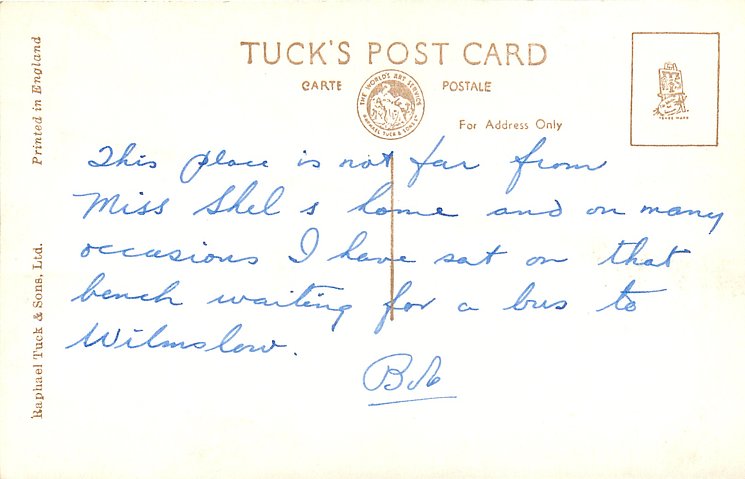 TUCK'S POST CARD
CARTE POSTALE
THE WORLD'S ART SERVICE
RAPHAEL TUCK & SONS LD
For Address Only
TRADE MARK
Printed in England
Raphael Tuck & Sons, Ltd.
This place is not far from
Miss Shel s home and on many
occasions I have sat on that
bench waiting for a bus to
Wilmslow.
Bob